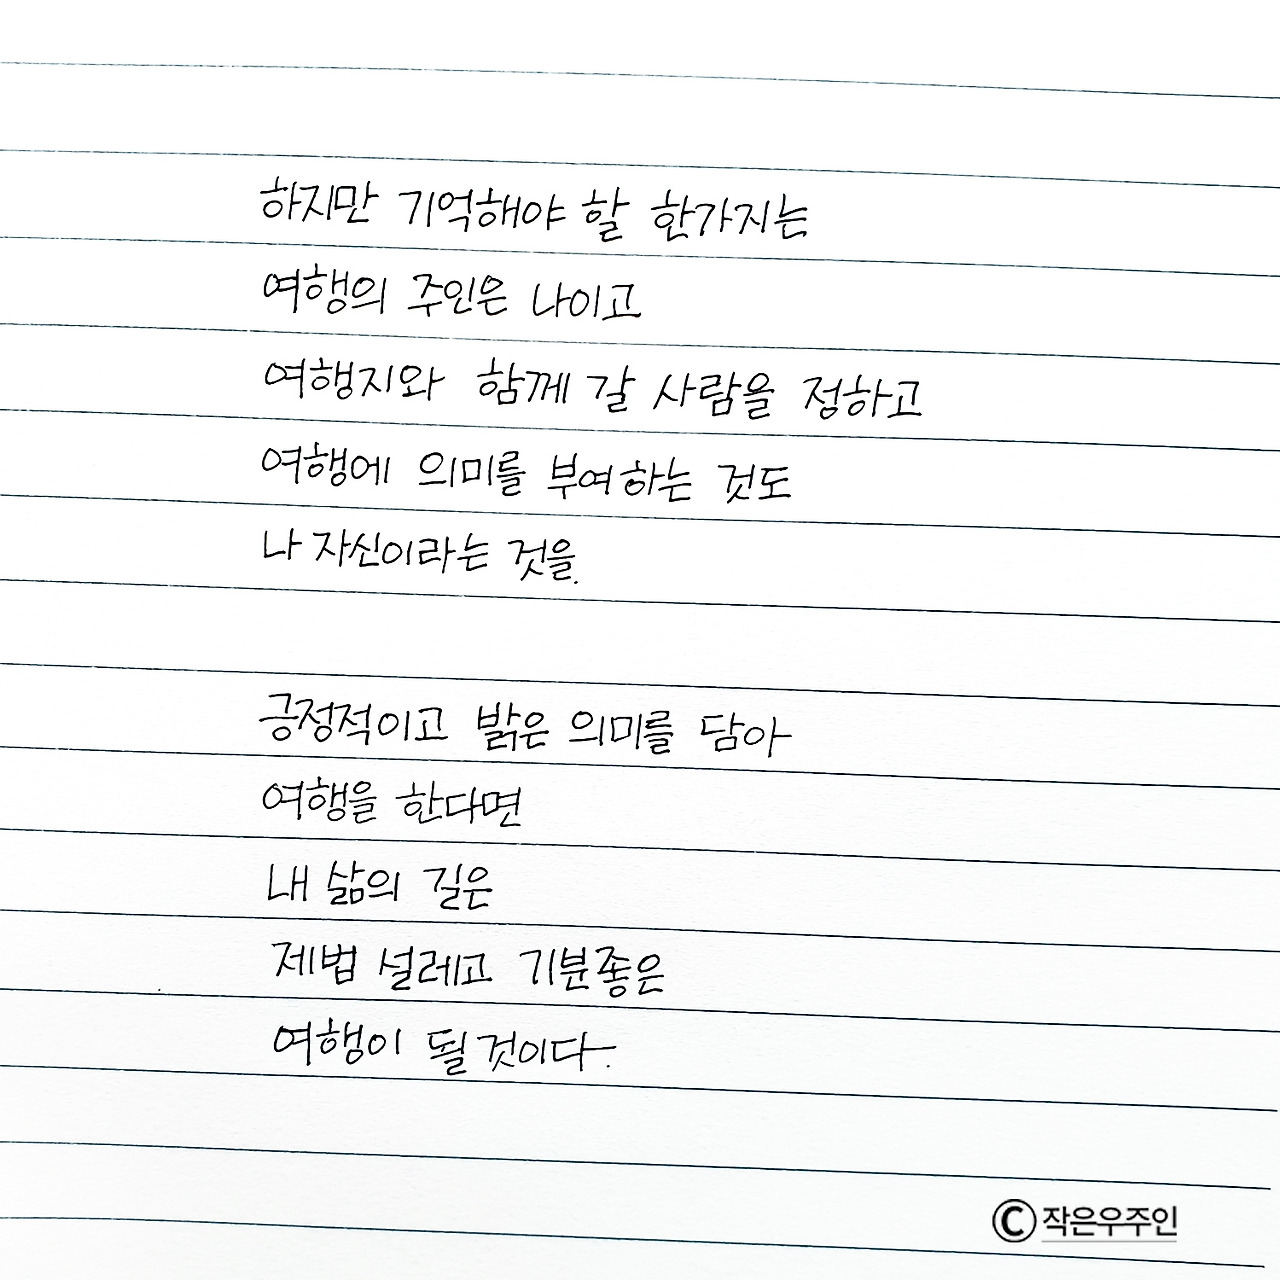 하지만 기억해야 할 한가지는
여행의 주인은 나이고
여행지와 함께 갈 사람을 정하고
여행에 의미를 부여하는 것도
나 자신이라는 것을.
긍정적이고 밝은 의미를 담아
여행을 한다면
내 삶의 길은
제법 설레고 기분좋은
여행이 될 것이다.
ⓒ작은우주인